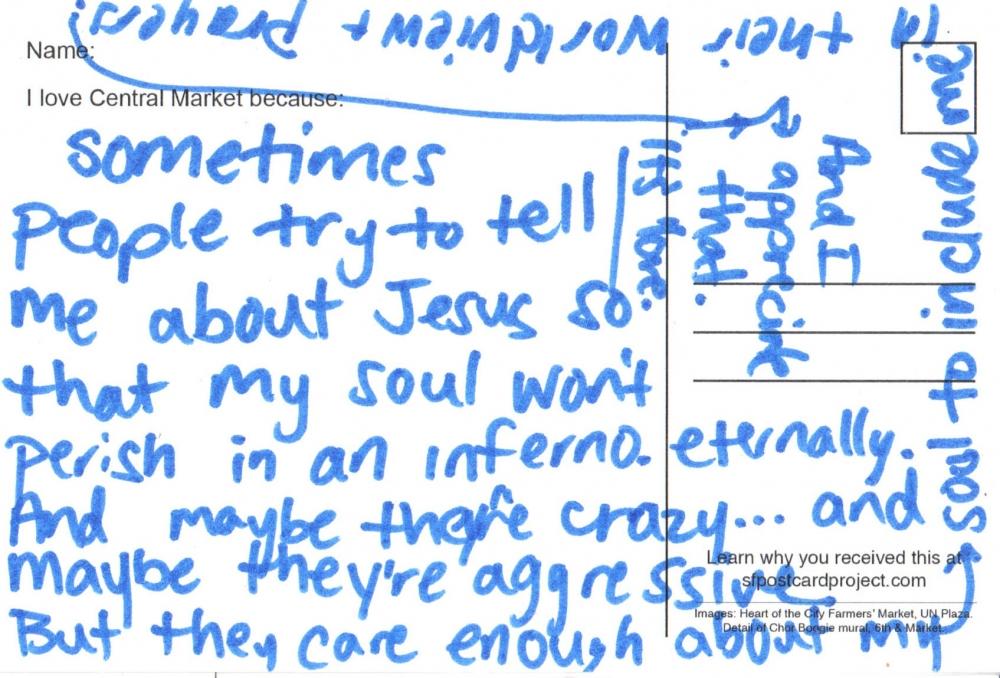 Name:
I love Central Market because:
sometimes
people try to tell
me about Jesus so
that my soul won't
perish in an inferno. eternally.
And maybe they're crazy... and
maybe they're aggressive
But they care enough about my
soul to include me
in their worldview + prayers.
And I
appreciate
that.
It's love.
Learn why you received this at
sfpostcardproject.com
Images: Heart of the City Farmers' Market, UN Plaza.
Detail of Chor Boogie mural, 6th & Market.